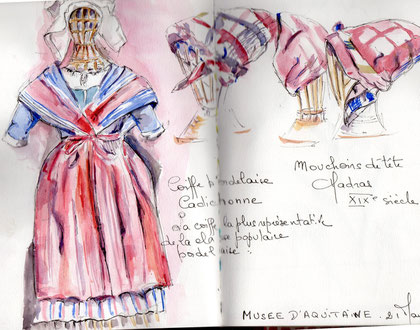 Coiffe bordelaise
Cadichonne
o
la coiffe la plus représentative
de la classe populaire
bordelaise.
Mouchoirs de tête
Madras
XIXe siècle
MUSEE D'AQUITAINE. 21